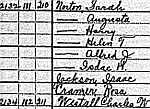 2132 111 210 Norton Sarah
— Augusta
— Harry
— Helen T
— Alfred J
— Isaac H
Jackson Isaac
Cramer Rosa
2134 112 211 Westall Charles W